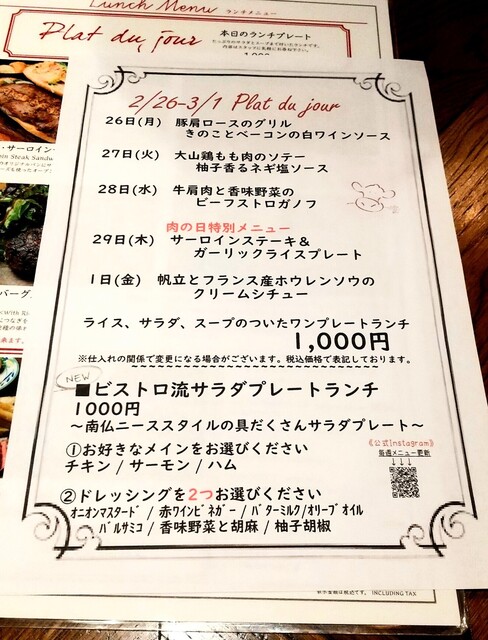 Lunch Menu ランチメニュー
Plat du jour
本日のランチプレート
2/26-3/1 Plat du jour
26日(月) 豚肩ロースのグリル
きのことベーコンの白ワインソース
27日(火) 大山鶏もも肉のソテー
柚子香るネギ塩ソース
28日(水) 牛肩肉と香味野菜の
ビーフストロガノフ
肉の日特別メニュー
29日(木) サーロインステーキ&
ガーリックライスプレート
1日(金) 帆立とフランス産ホウレンソウの
クリームシチュー
ライス、サラダ、スープのついたワンプレートランチ
1,000円
※仕入れの関係で変更になる場合がございます。税込価格で表記しております。
NEW
■ビストロ流サラダプレートランチ
1000円
~南仏ニーススタイルの具だくさんサラダプレート~
①お好きなメインをお選びください
チキン / サーモン / ハム
《公式Instagram》
毎週メニュー更新
↓↓↓
②ドレッシングを2つお選びください
オニオンマスタード / 赤ワインビネガー / バターミルク/オリーブオイル
バルサミコ / 香味野菜と胡麻 / 柚子胡椒
INCLUDING TAX